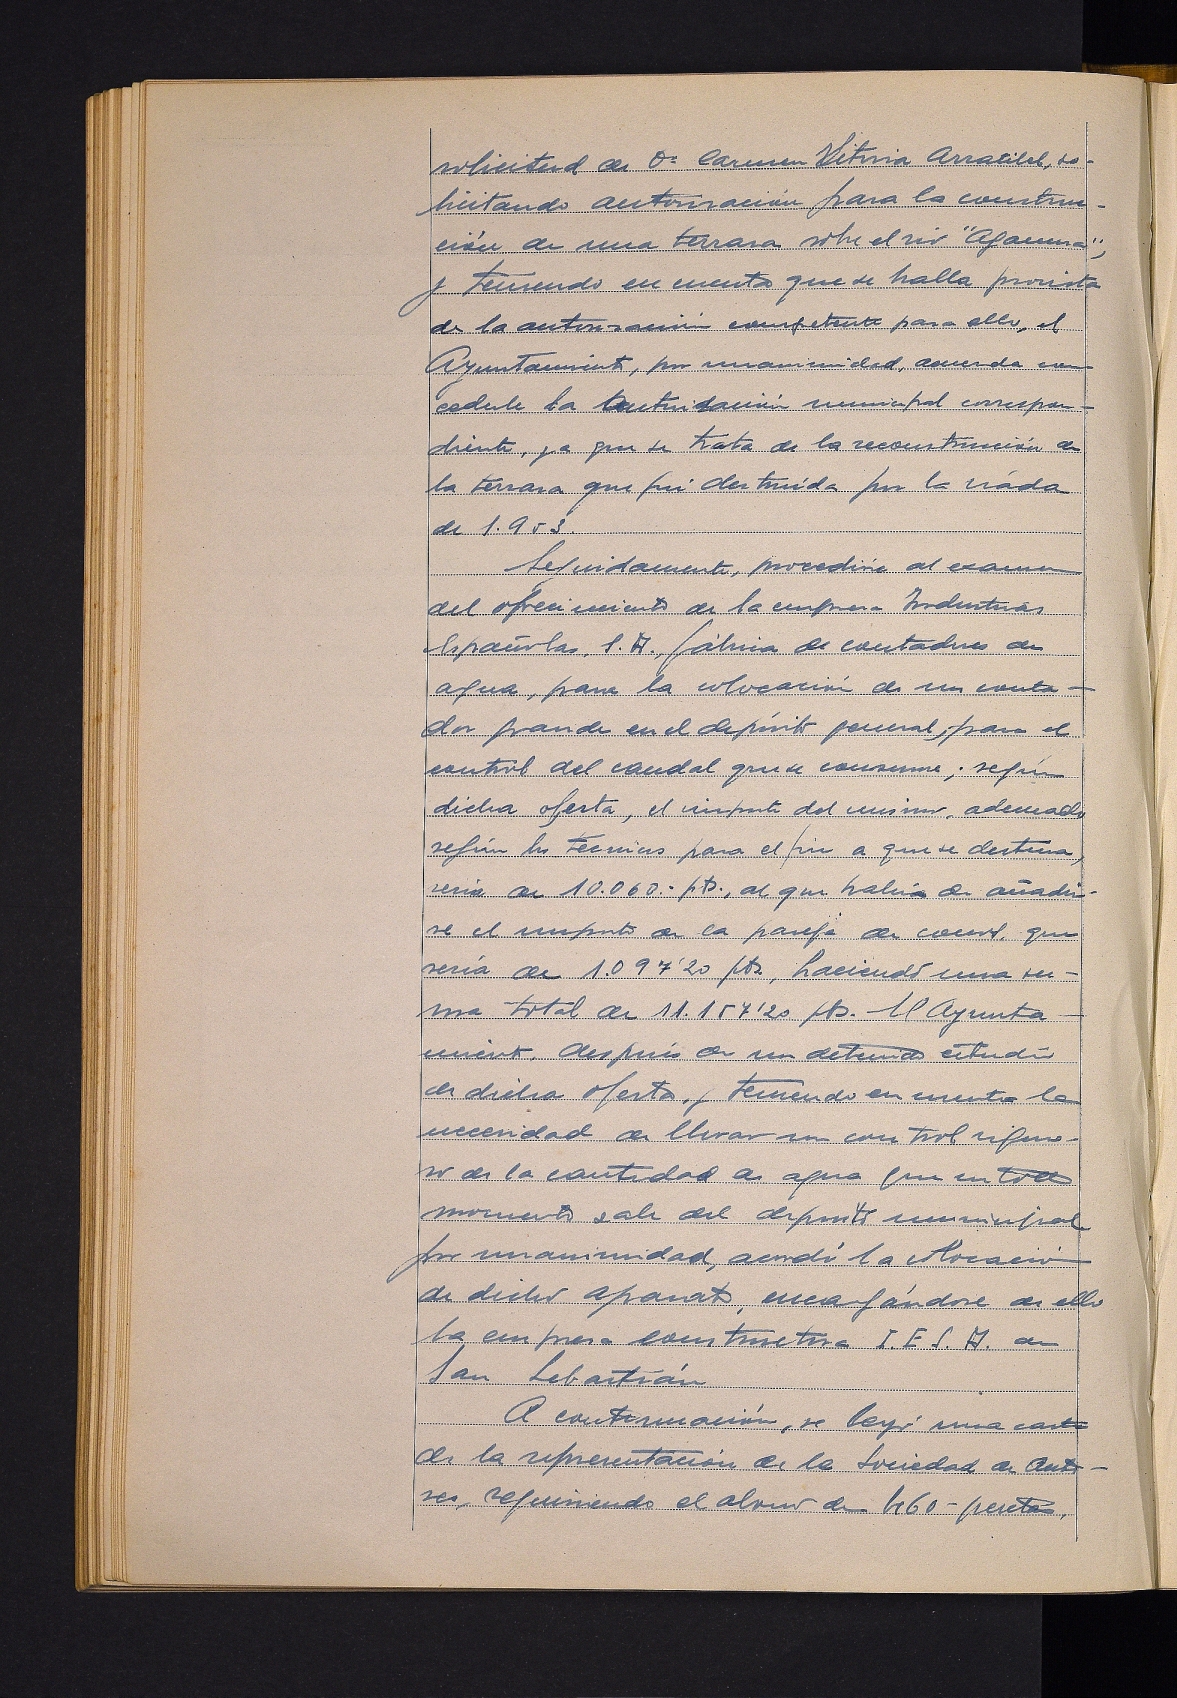 solicitud de Dª Carmen Vitoria Arratibel, so-
licitando autorización para la construc-
ción de una terraza sobre el rio "Agauntza",
y teniendo en cuenta que se halla provista
de la autorización competente para ello, el
Ayuntamiento, por unanimidad, acuerda con-
cederle la autorización municipal correspon-
diente, ya que se trata de la reconstrucción de
la terraza que fué destruida por la riada
de 1.953.
Seguidamente, procedióse al examen
del ofrecimiento de la empresa Industrias
Españolas, S.A., fábrica de contadores de
agua, para la colocación de un conta-
dor grande en el depósito general, para el
control del caudal que se consume; según
dicha oferta, el importe del mismo, adecuado
según los técnicos para el fin a que se destina,
sería de 10.060.- pts., al que habría de añadir-
se el importe de la pareja de conos, que
sería de 1.097'20 pts, haciendo una su-
ma total de 11.157'20 pts. El Ayunta-
miento, después de un detenido estudio
de dicha oferta, y teniendo en cuenta la
necesidad de llevar un control riguro-
so de la cantidad de agua que en todo
momento sale del depósito municipal
por unanimidad, acordó la colocación
de dicho aparato, encargándose de ello
la empresa constructora I.E.S.A. de
San Sebastián
A continuación, se leyó una carta
de la representación de la Sociedad de Auto-
res, requiriendo el abono de 460 - pesetas,